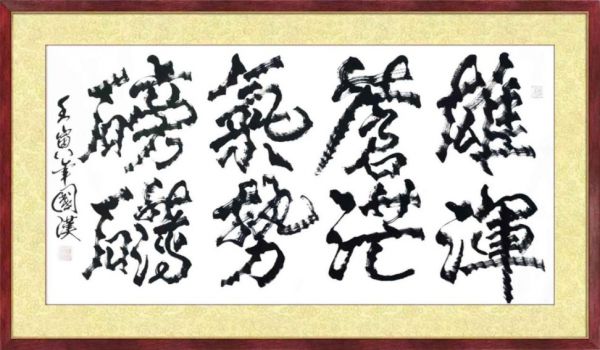 雄渾
蒼茫
氣勢
磅礴
壬寅年國漢